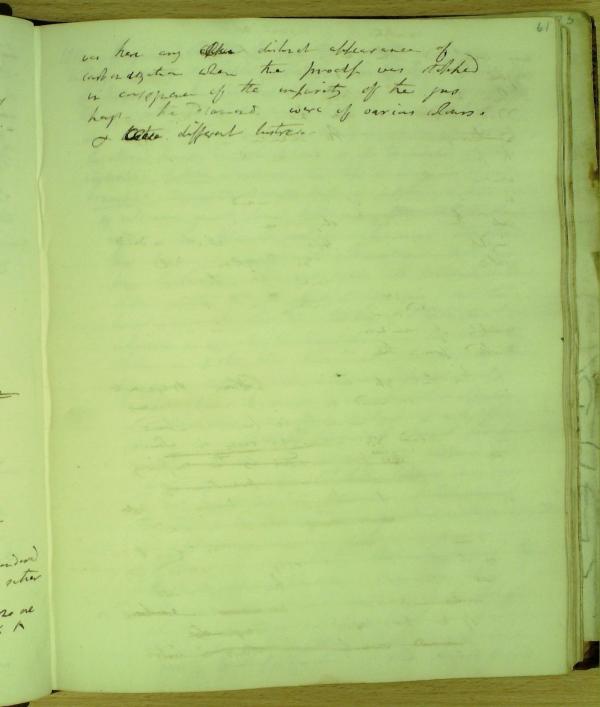 61
was here any distinct appearance of
carbonization when the process was stopped
in consequence of the impurity of the gas
the diamonds were of various colours.
& different lustre